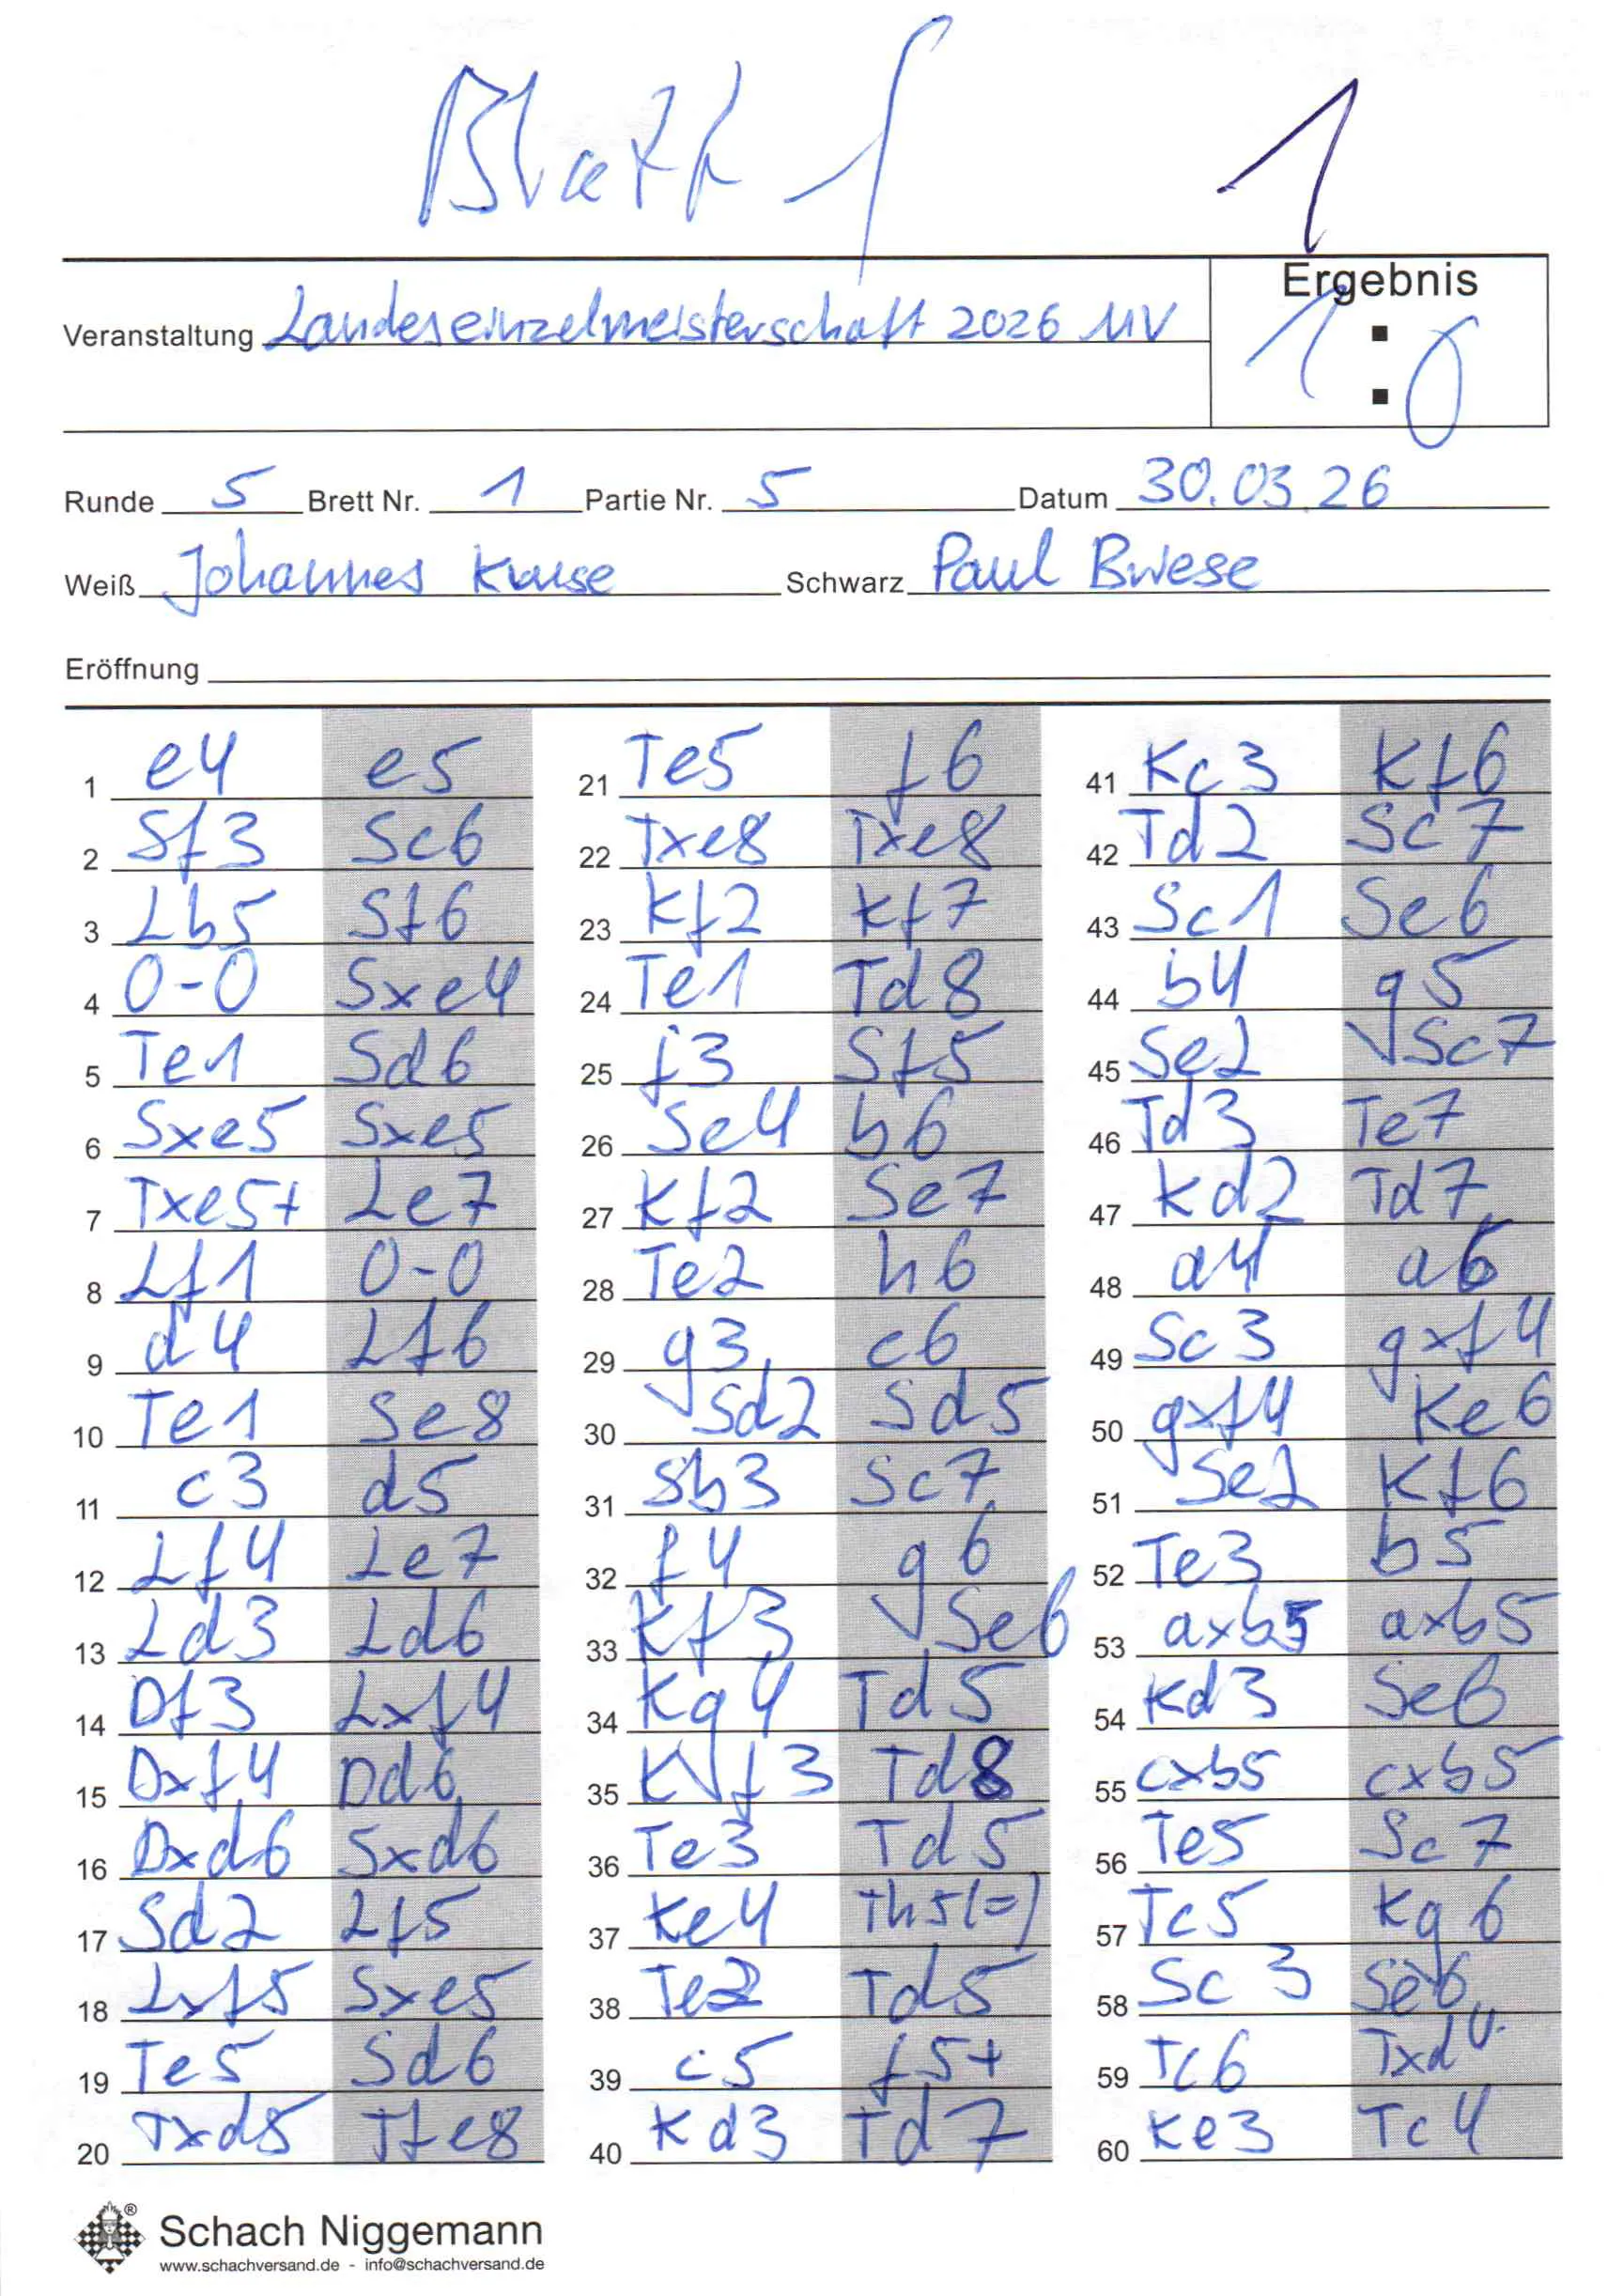 Blatt 1 1
Ergebnis
Veranstaltung Landeseinzelmeisterschaft 2026 MV
1 : 0
Runde 5 Brett Nr. 1 Partie Nr. 5 Datum 30.03.26
Weiß Johannes Schwarz Paul
Eröffnung
1 e4 e5
2 Sf3 Sc6
3 Lb5 Sf6
4 0-0 Sxe4
5 Te1 Sd6
6 Sxe5 Sxe5
7 Txe5+ Le7
8 Lf1 0-0
9 d4 Lf6
10 Te1 Se8
11 c3 d5
12 Lf4 Le7
13 Ld3 Ld6
14 Df3 Lxf4
15 Dxf4 Dd6
16 Dxd6 Sxd6
17 Sd2 Lf5
18 Lxf5 Sxe5
19 Te5 Sd6
20 Txd5 Tfe8
21 Te5 f6
22 Txe8 Txe8
23 Kf2 Kf7
24 Te1 Td8
25 f3 Sf5
26 Se4 b6
27 Kf2 Se7
28 Te2 h6
29 g3 c6
30 Sd2 Sd5
31 Sb3 Sc7
32 f4 g6
33 Kf3 Se6
34 Kg4 Td5
35 Kf3 Td8
36 Te3 Td5
37 Ke4 Th5(=)
38 Te2 Td5
39 c5 f5+
40 Kd3 Td7
41 Kc3 Kf6
42 Td2 Sc7
43 Sc1 Se6
44 b4 g5
45 Se2 Sc7
46 Td3 Te7
47 Kd2 Td7
48 a4 a6
49 Sc3 gxf4
50 gxf4 Ke6
51 Se2 Kf6
52 Te3 b5
53 axb5 axb5
54 Kd3 Se6
55 cxb5 cxb5
56 Te5 Sc7
57 Tc5 Kg6
58 Sc3 Se6
59 Tc6 Txd4
60 Ke3 Tc4
Schach Niggemann
www.schachversand.de - info@schachversand.de